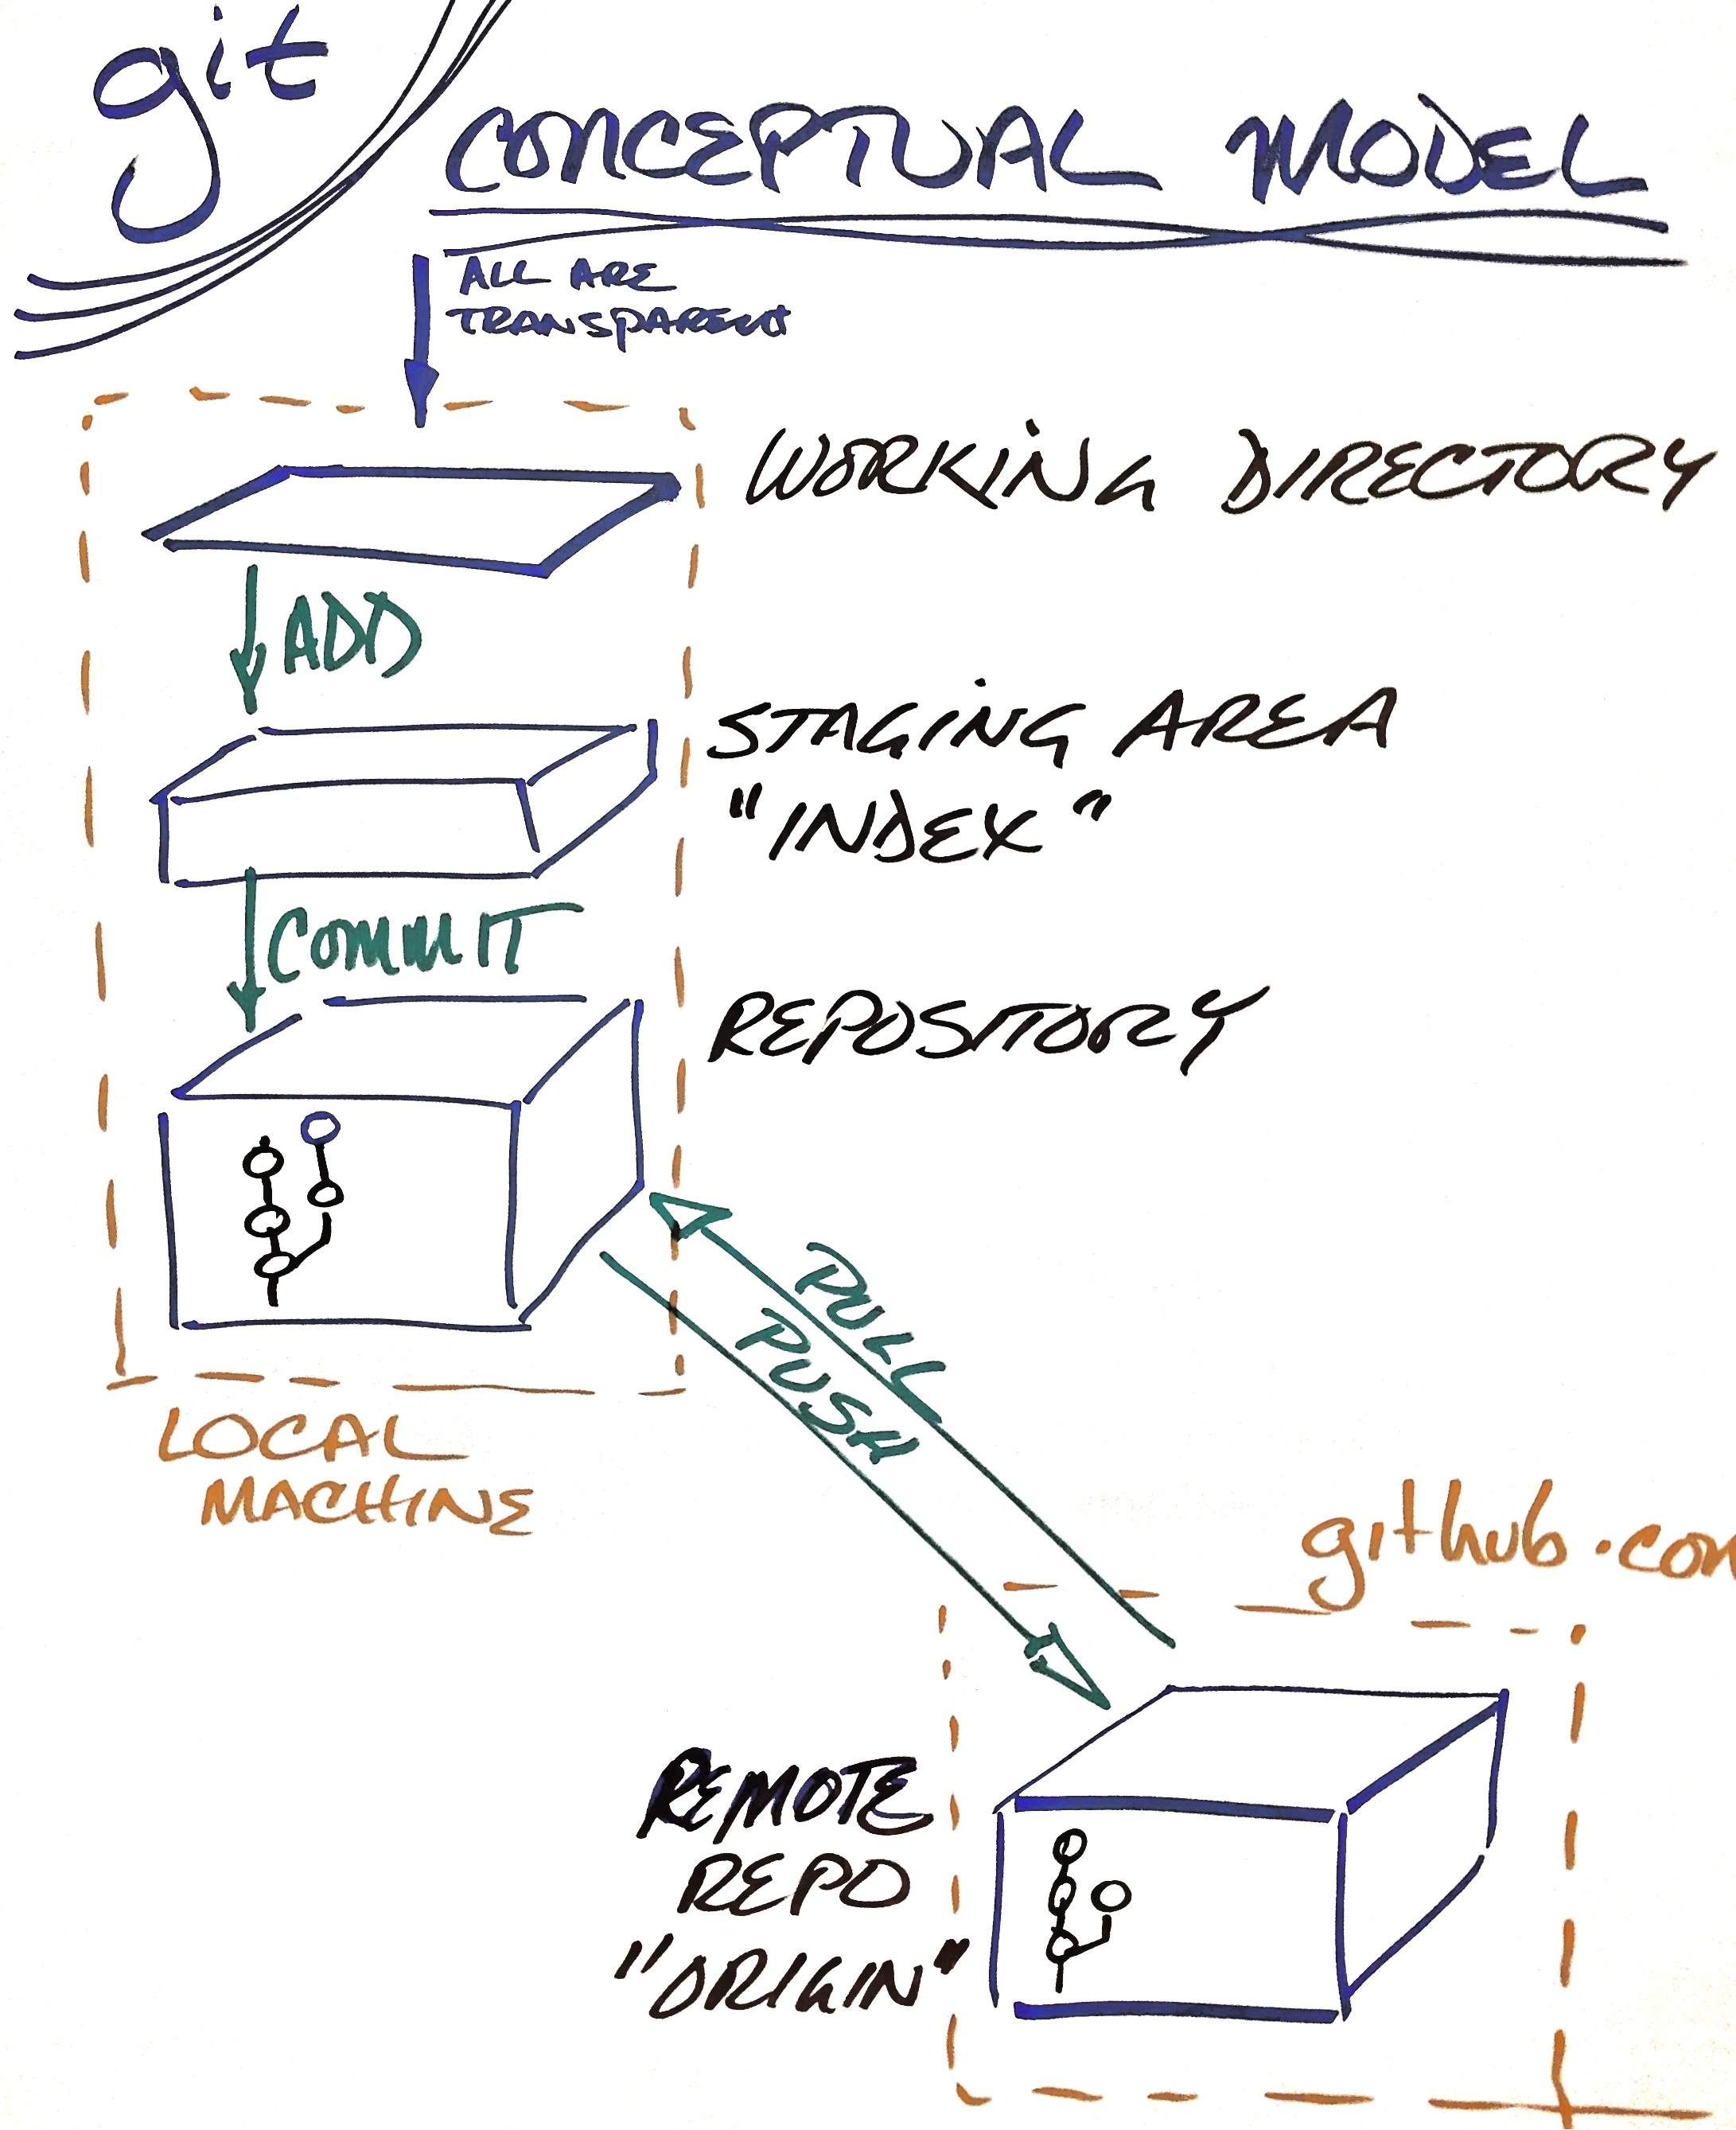 git
CONCEPTUAL MODEL
ALL ARE
TRANSPARENT
WORKING DIRECTORY
ADD
STAGING AREA
"INDEX"
COMMIT
REPOSITORY
PULL
PUSH
LOCAL
MACHINE
github.com
REMOTE
REPO
"ORIGIN"